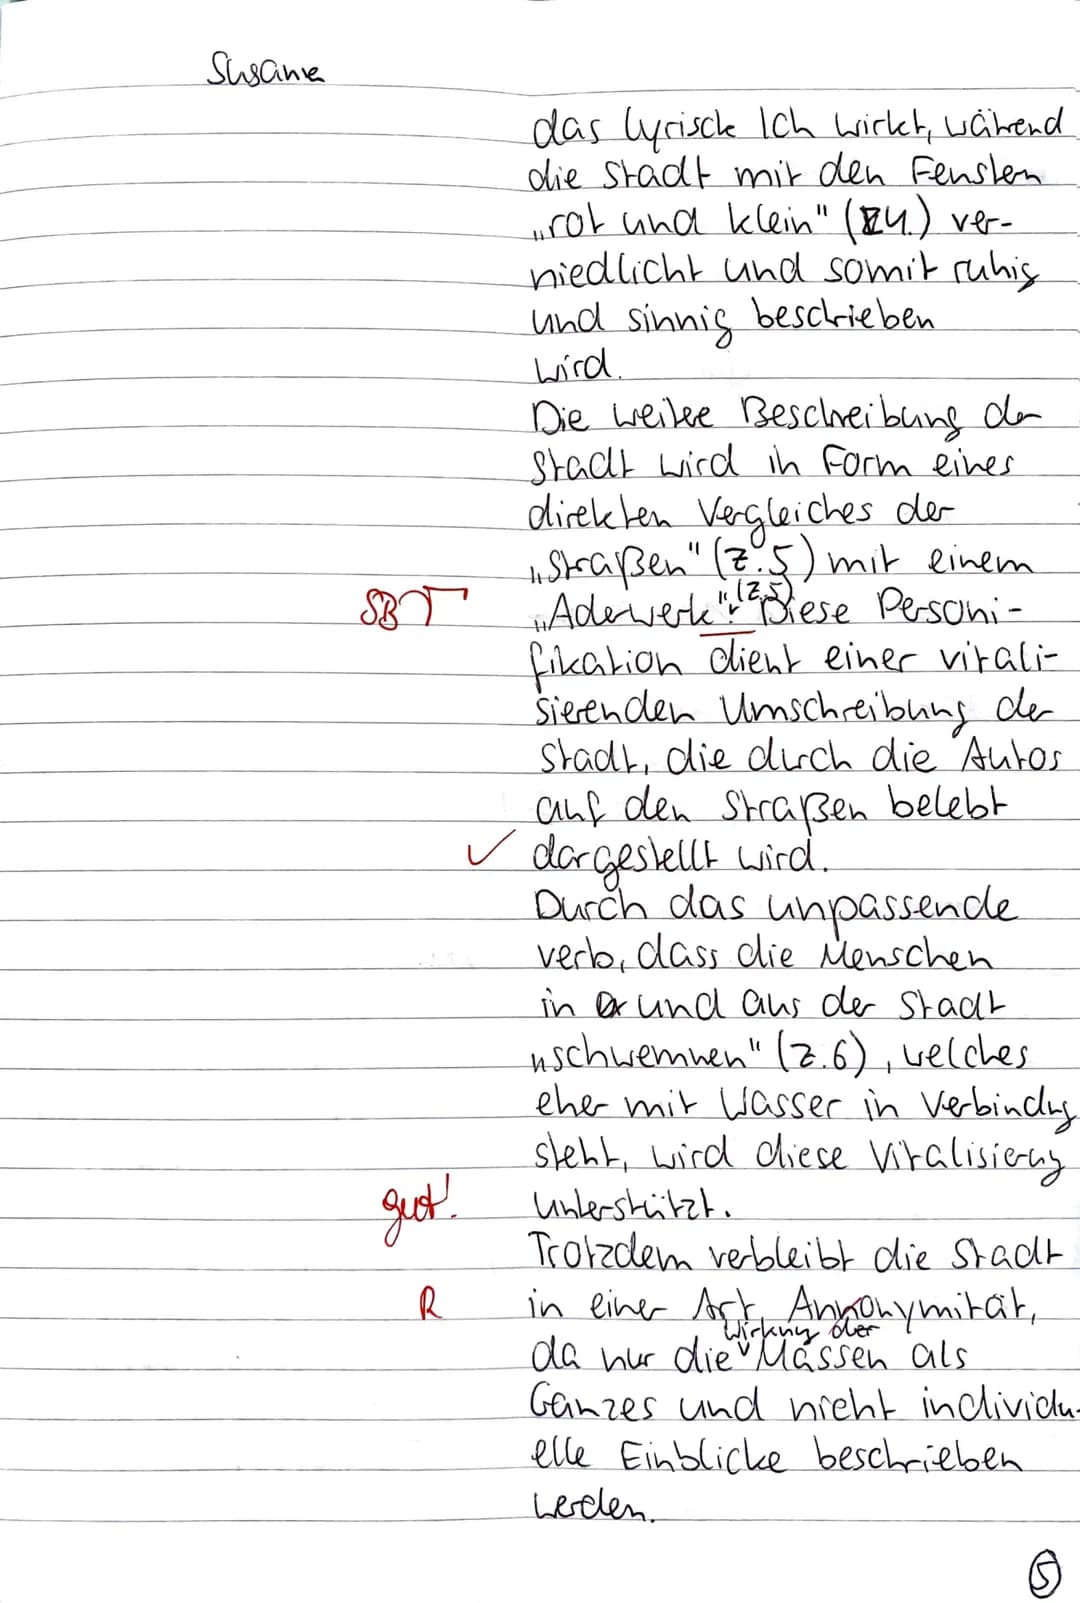 Susanne
das lyrische Ich wirkt, während
die Stadt mit den Fenstern
„rot und klein" (Z4.) ver-
niedlicht und somit ruhig
und sinnig beschrieben
wird.
Die weitere Beschreibung der
Stadt wird in Form eines
direkten Vergleiches der
„Straßen" (Z.5) mit einem
SB T „Aderwerk" (Z.5). Diese Personi-
fikation dient einer vitali-
sierenden Umschreibung der
Stadt, die durch die Autos
auf den Straßen belebt
✓ dargestellt wird.
Durch das unpassende
verb, dass die Menschen
in und aus der Stadt
„schwemmen" (Z.6), welches
eher mit Wasser in Verbindung
steht, wird diese Vitalisierung
gut! unterstützt.
Trotzdem verbleibt die Stadt
R in einer Art Annonymität,
da nur die Wirkung der Massen als
Ganzes und nicht individu-
elle Einblicke beschrieben
werden.
5